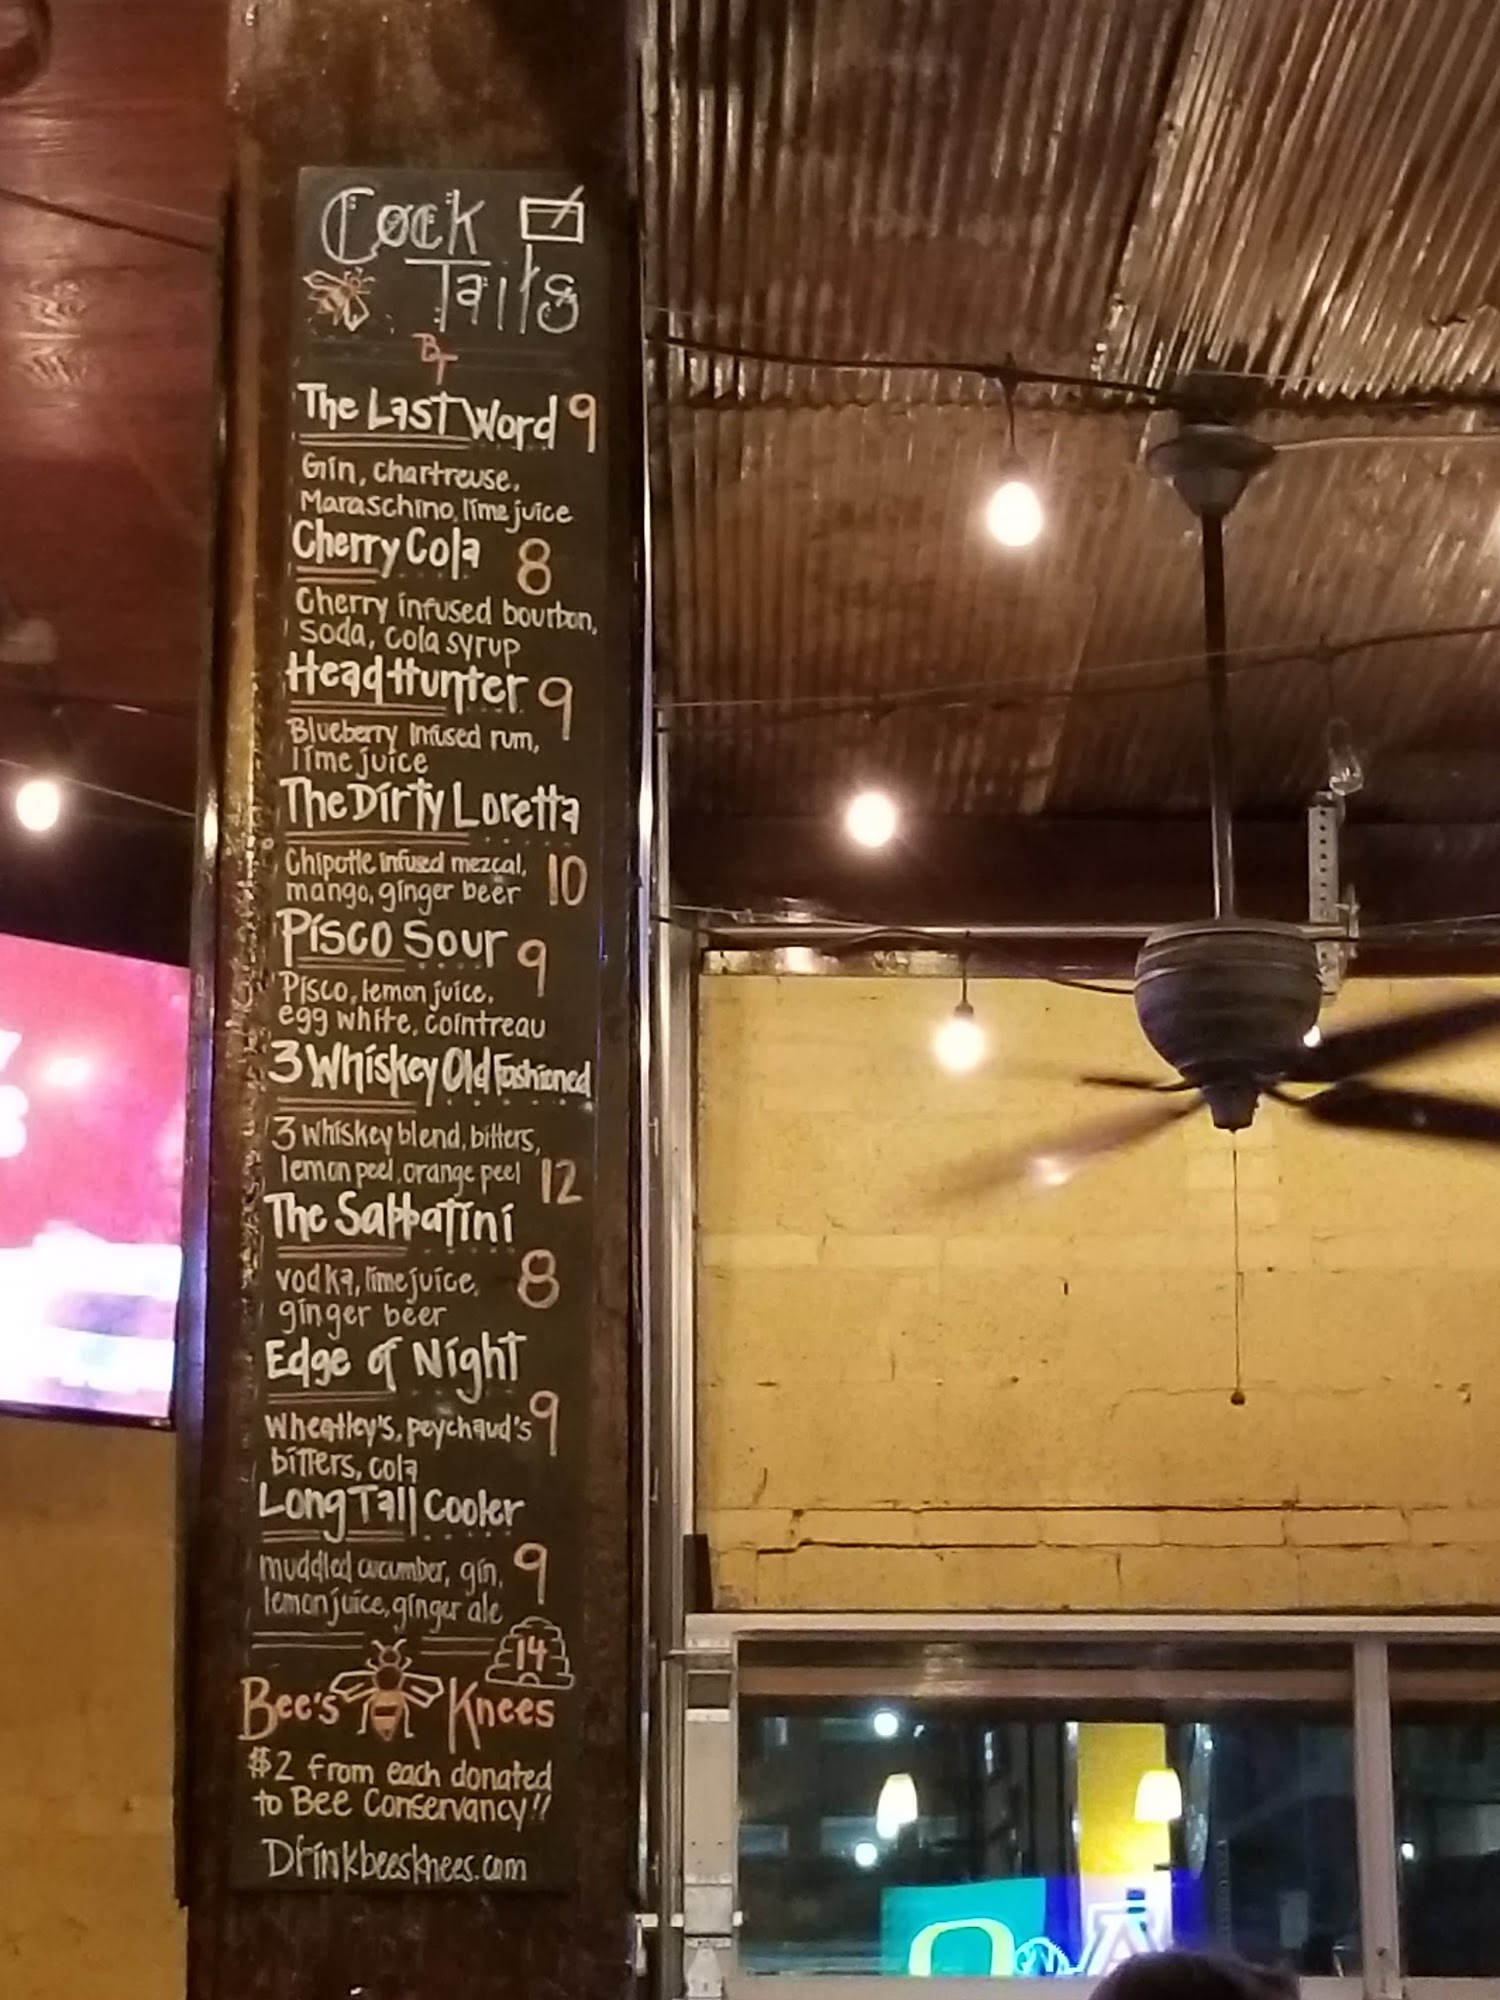 Cock
Tails
BT
The Last Word 9
Gin, chartreuse,
Maraschino, lime juice
Cherry Cola 8
Cherry infused bourbon,
soda, cola syrup
Head Hunter 9
Blueberry infused rum,
lime juice
The Dirty Loretta
Chipotle infused mezcal,
mango, ginger beer 10
Pisco Sour 9
Pisco, lemon juice,
egg white, cointreau
3 Whiskey Old Fashioned
3 whiskey blend, bitters,
lemon peel, orange peel 12
The Sabbatini
vodka, lime juice, 8
ginger beer
Edge of Night
Wheatley's, peychaud's 9
bitters, cola
Long Tall Cooler
muddled cucumber, gin, 9
lemon juice, ginger ale
14
Bee's Knees
$2 from each donated
to Bee Conservancy!!
Drinkbeesknees.com
O A